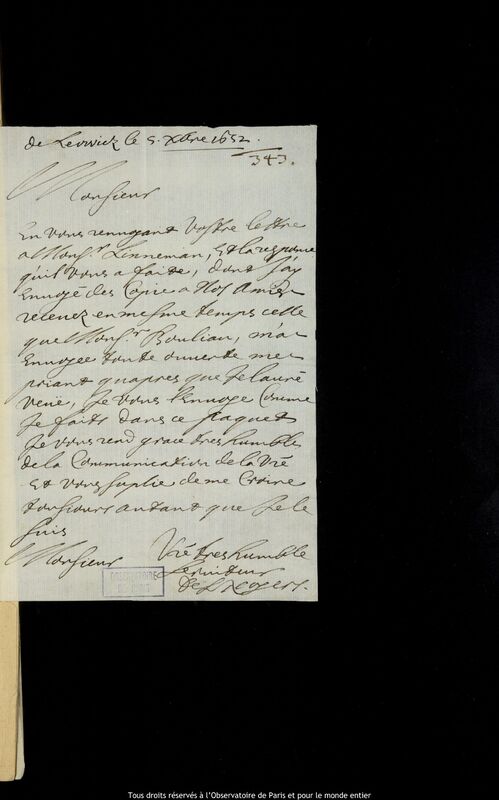 de Leovvick le 5. Xbre 1652.
343.
Monsieur
En vous renvoyant vostre lettre
a Mons.r Linneman, Et la response
qu'il vous a faite, dont j'ay
Envoyé des Copie a Nos Amies
recevez en mesme temps celle
que Mons.r Bouliau, m'a
Envoyee toute ouverte me
priant qu'apres que Je l'auré
veüe, Je vous l'Envoye Comme
Je faits dans ce pacquet
Je vous rend grace tres humble
de la Communication de la Vre
Et vous suplie de me Croire
tousiours autant que Je le
suis
Monsieur Vre tres humble
serviteur
Des Noyers.
OBSERVATOIRE
DE PARIS
Tous droits réservés à l'Observatoire de Paris et pour le monde entier